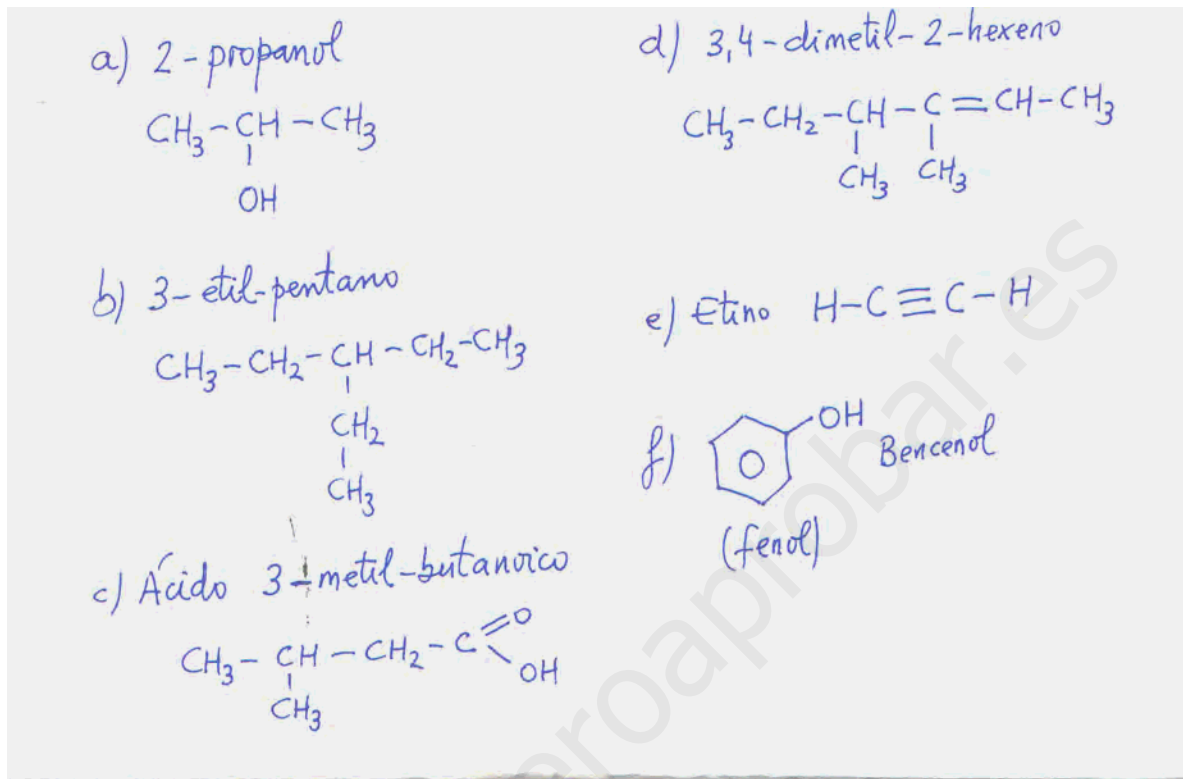 a) 2-propanol
CH₃-CH-CH₃
OH
b) 3-etil-pentano
CH₃-CH₂-CH-CH₂-CH₃
CH₂
CH₃
c) Ácido 3-metil-butanoico
CH₃-CH-CH₂-C=O
OH
CH₃
d) 3,4-dimetil-2-hexeno
CH₃-CH₂-CH-C=CH-CH₃
CH₃ CH₃
e) Etino H-C≡C-H
f) OH Bencenol
(fenol)
eroaprobar.es